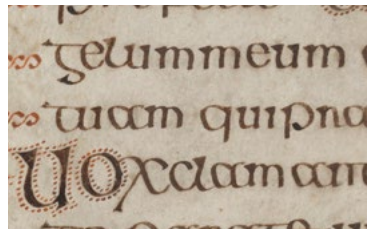 gelummeum
tuam quipna
Uoxclamam